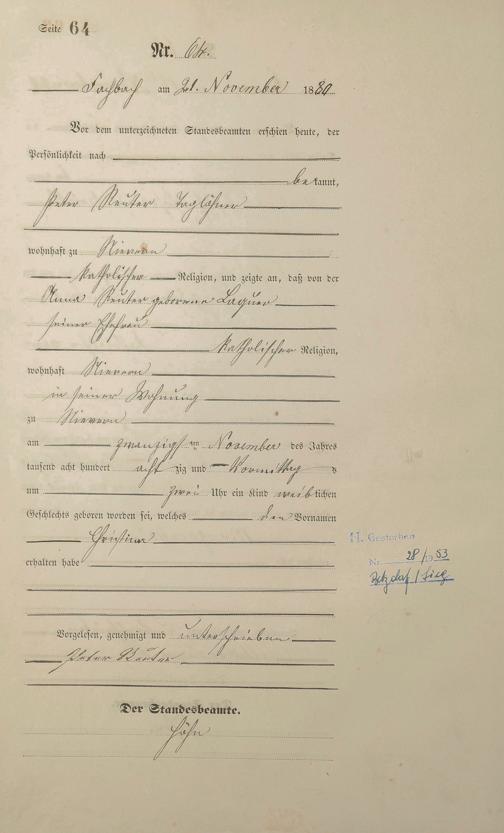 Seite 64
Nr. 64.
Fachbach am 21. November 1880.
Vor dem unterzeichneten Standesbeamten erschien heute, der
Persönlichkeit nach
bekannt,
Peter Reuter Taglöhner
wohnhaft zu Nievern
katholischer Religion, und zeigte an, daß von der
Anna Reuter geborene Laquer
seiner Ehefrau
katholischer Religion,
wohnhaft Nievern
in seiner Wohnung
zu Nievern
am zwanzigsten November des Jahres
tausend acht hundert acht zig und Vormittag s
um zwei Uhr ein Kind weiblichen
Geschlechts geboren worden sei, welches den Vornamen
Christina
erhalten habe
H. Gestorben
Nr. 28/1953
Betzdorf / Sieg
Vorgelesen, genehmigt und unterschrieben
Peter Reuter
Der Standesbeamte.
Höhn